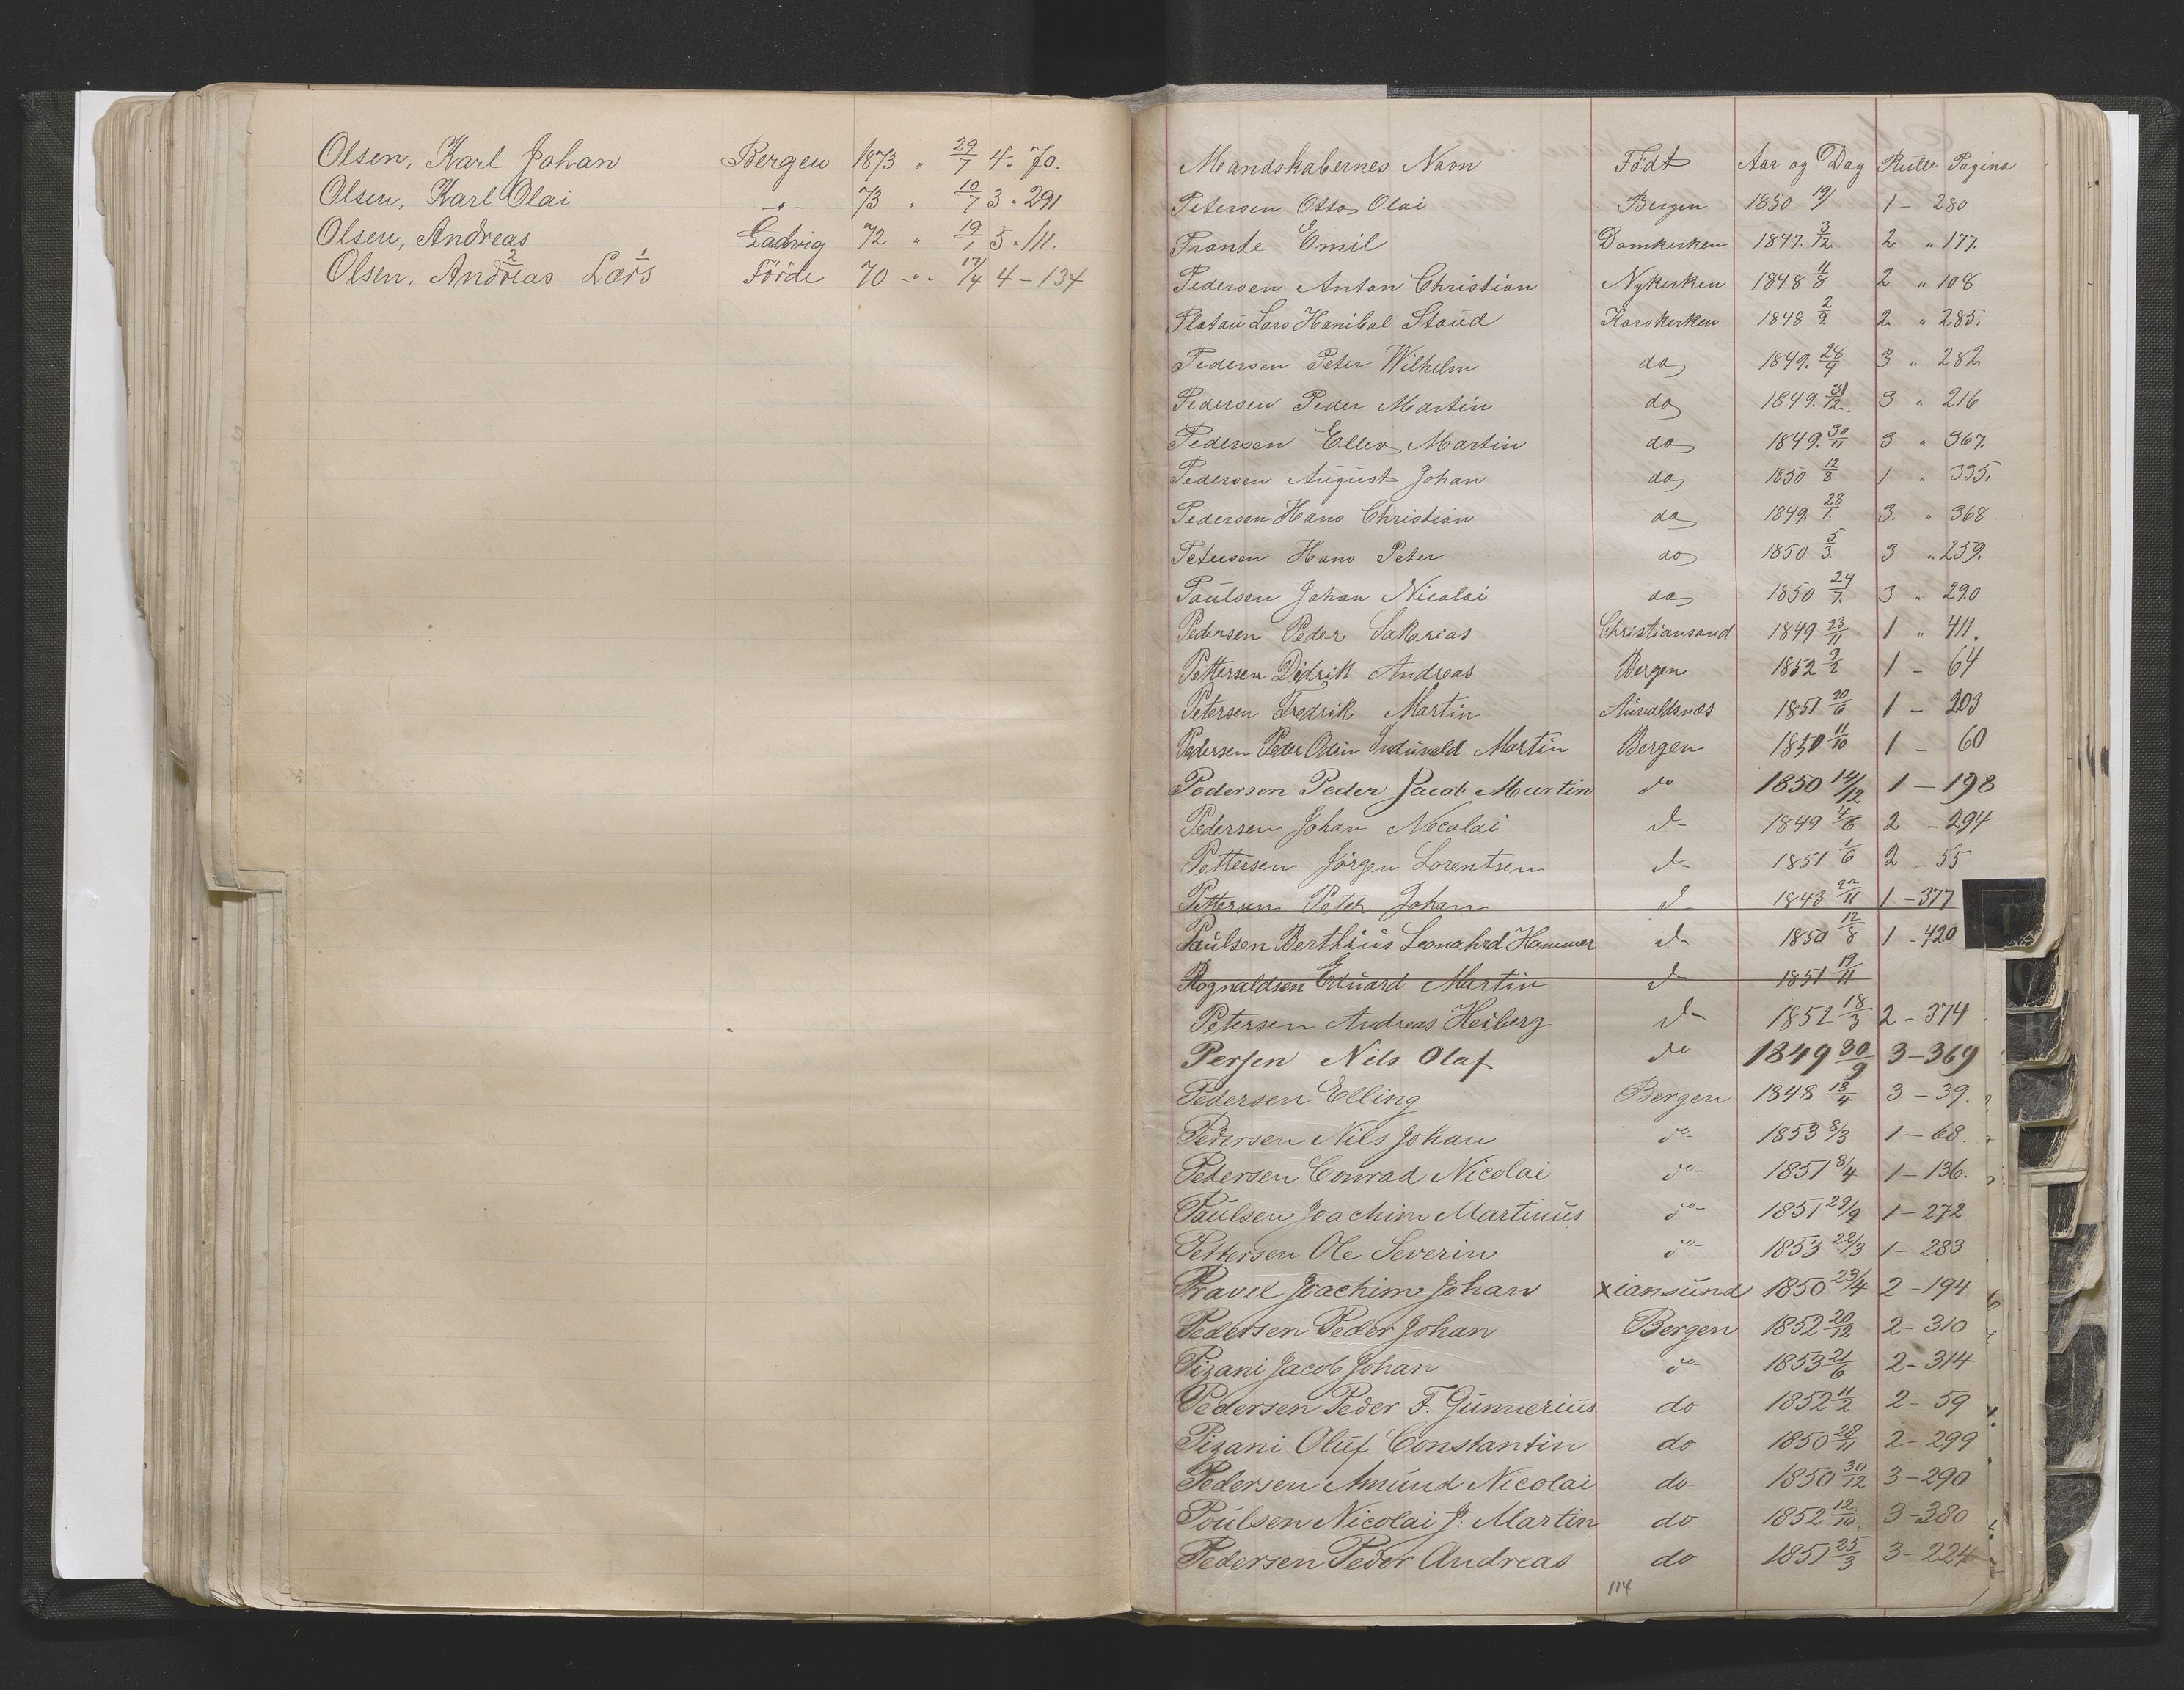 Olsen, Karl Johan Bergen 1873 " 29/7 4 " 70.
Olsen, Karl Olai -"- 73 " 10/7 3 " 291
Olsen, Andreas Ladvig 72 " 19/1 5 " 111.
Olsen, Andreas 2 Lars 1 Förde 70 -"- 17/4 4 - 134
Mandskabernes Navn Födt Aar og Dag Rulle Pagina
Petersen Otto Olai Bergen 1850 19/ 1 - 280
Prante Emil Domkerken 1847. 3/12 2 " 177.
Pedersen Anton Christian Nykerken 1848 11/8 2 " 108
Platou Lars Hanibal Stoud Korskerken 1848 2/9 2 " 285.
Pedersen Peter Wilhelm do 1849. 28/9 3 " 282
Pedersen Peder Martin do 1849. 31/12. 3 " 216
Pedersen Eller Martin do 1849. 30/11 3 " 367.
Pedersen August Johan do 1850 12/8 1 " 335.
Pedersen Hans Christian do 1849. 28/1. 3. " 368
Petersen Hans Peter do 1850 5/3. 3 " 259.
Paulsen Johan Nicolai do 1850 24/7. 3 " 290
Pedersen Peder Sakarias Christiansand 1849 23/11 1 " 411.
Pettersen Didrik Andreas Bergen 1852 9/2 1 - 64
Petersen Fredrik Martin Auvaldsnæs 1851 20/6 1 - 203
Pedersen Peder Odin Induvald Martin Bergen 1850 11/10 1 - 60
Pedersen Peder Jacob Martin do 1850 14/12 1 - 198
Pedersen Johan Necolai d- 1849 4/6 2 - 294
Pettersen Jörgen Lorentsen d- 1851 1/6 2 - 55
Pettersen Peter Johan d- 1843 22/11 1 - 377
Paulsen Berthius Leonahrd Hammer d- 1850 12/8 1 - 420
Rognaldsen Eduard Martin d- 1851 19/11
Petersen Andreas Heiberg d- 1852 18/3 2 - 374
Persen Nils Olaf do 1849 30/9 3 - 369
Pedersen Elling Bergen 1848 13/4 3 - 39.
Pedersen Nils Johan do- 1853 8/3 1 - 68.
Pedersen Conrad Nicolai do- 1851 8/4 1 - 136.
Paulsen Joachim Martinus do- 1851 29/9 1 - 272
Pettersen Ole Severin do- 1853 22/3 1 - 283
Pravel Joachim Johan Xiansund 1850 23/4 2 - 194
Pedersen Peder Johan Bergen 1852 20/12 2 - 310
Pizani Jacob Johan do- 1853 21/6 2 - 314
Pedersen Peder F. Gunnerius do 1852 11/2 2 - 59
Pizani Oluf Constantin do 1850 28/11 2 - 299
Pedersen Amund Nicolai do 1850 30/12 3 - 290
Poulsen Nicolai J: Martin do 1852 12/10 3 - 380
Pedersen Peder Andreas do 1851 25/3 3 - 224
114